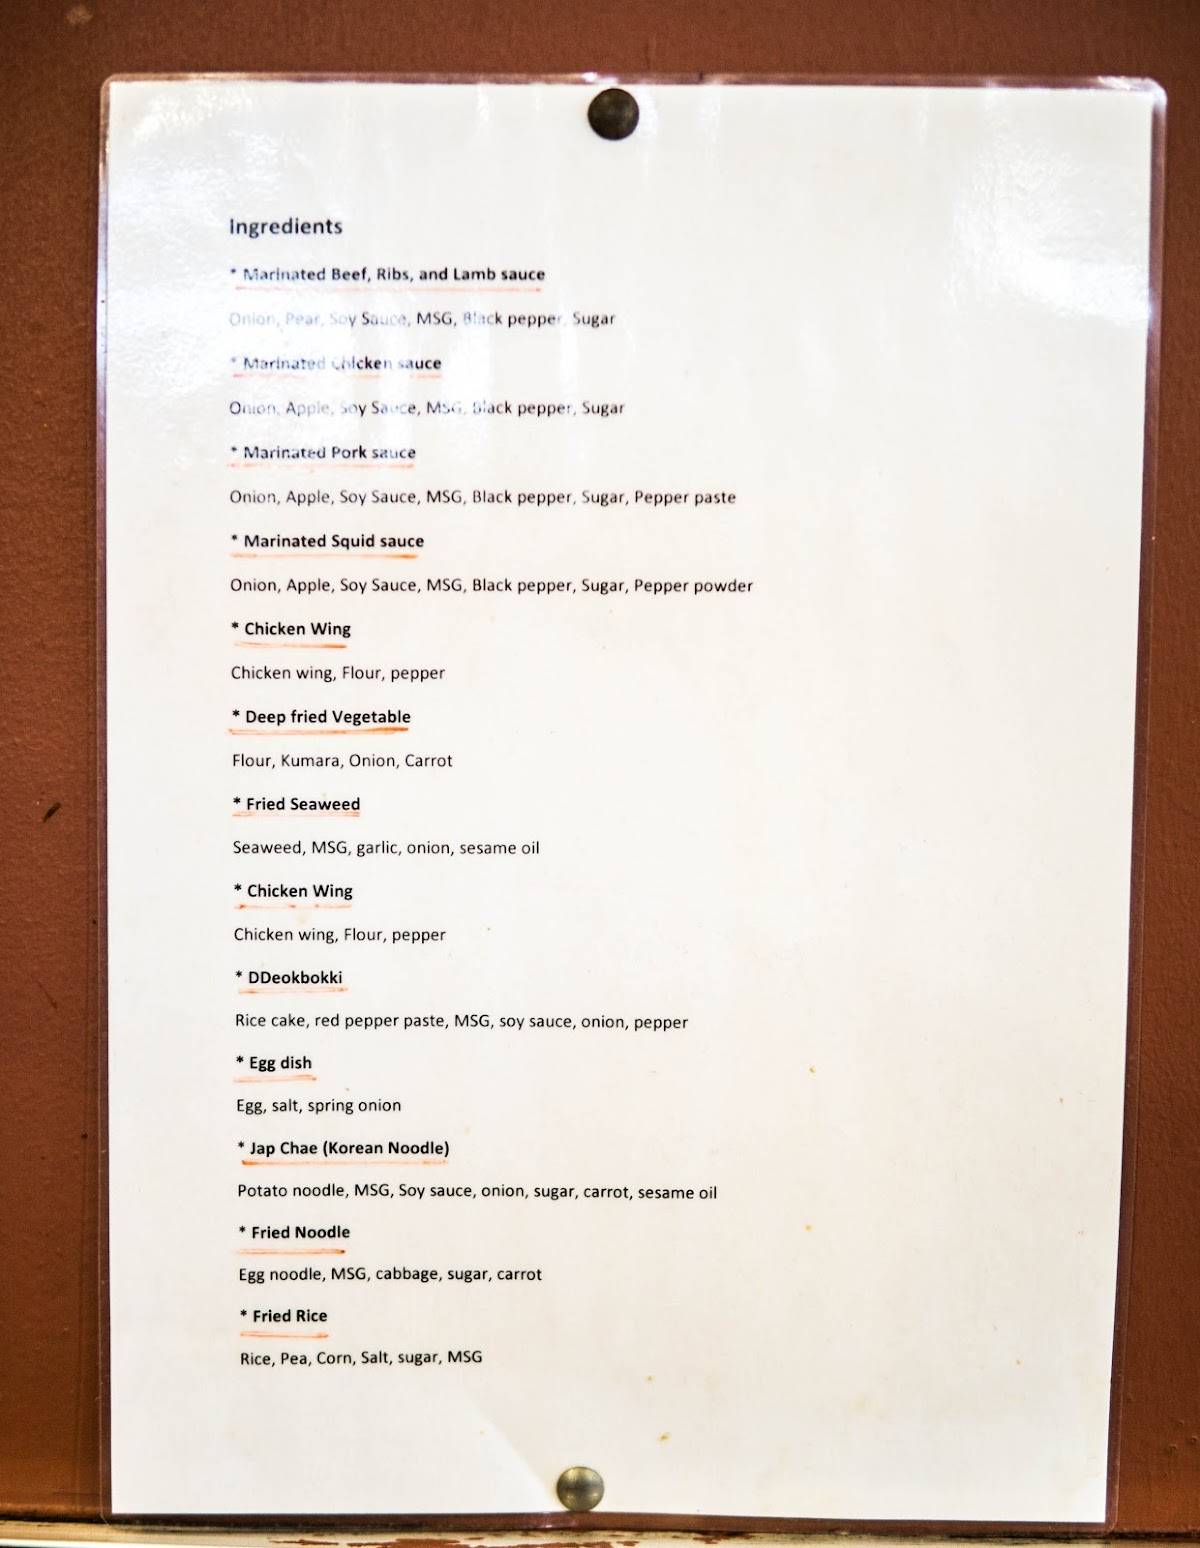 Ingredients
* Marinated Beef, Ribs, and Lamb sauce
Onion, Pear, Soy Sauce, MSG, Black pepper, Sugar
* Marinated Chicken sauce
Onion, Apple, Soy Sauce, MSG, Black pepper, Sugar
* Marinated Pork sauce
Onion, Apple, Soy Sauce, MSG, Black pepper, Sugar, Pepper paste
* Marinated Squid sauce
Onion, Apple, Soy Sauce, MSG, Black pepper, Sugar, Pepper powder
* Chicken Wing
Chicken wing, Flour, pepper
* Deep fried Vegetable
Flour, Kumara, Onion, Carrot
* Fried Seaweed
Seaweed, MSG, garlic, onion, sesame oil
* Chicken Wing
Chicken wing, Flour, pepper
* DDeokbokki
Rice cake, red pepper paste, MSG, soy sauce, onion, pepper
* Egg dish
Egg, salt, spring onion
* Jap Chae (Korean Noodle)
Potato noodle, MSG, Soy sauce, onion, sugar, carrot, sesame oil
* Fried Noodle
Egg noodle, MSG, cabbage, sugar, carrot
* Fried Rice
Rice, Pea, Corn, Salt, sugar, MSG